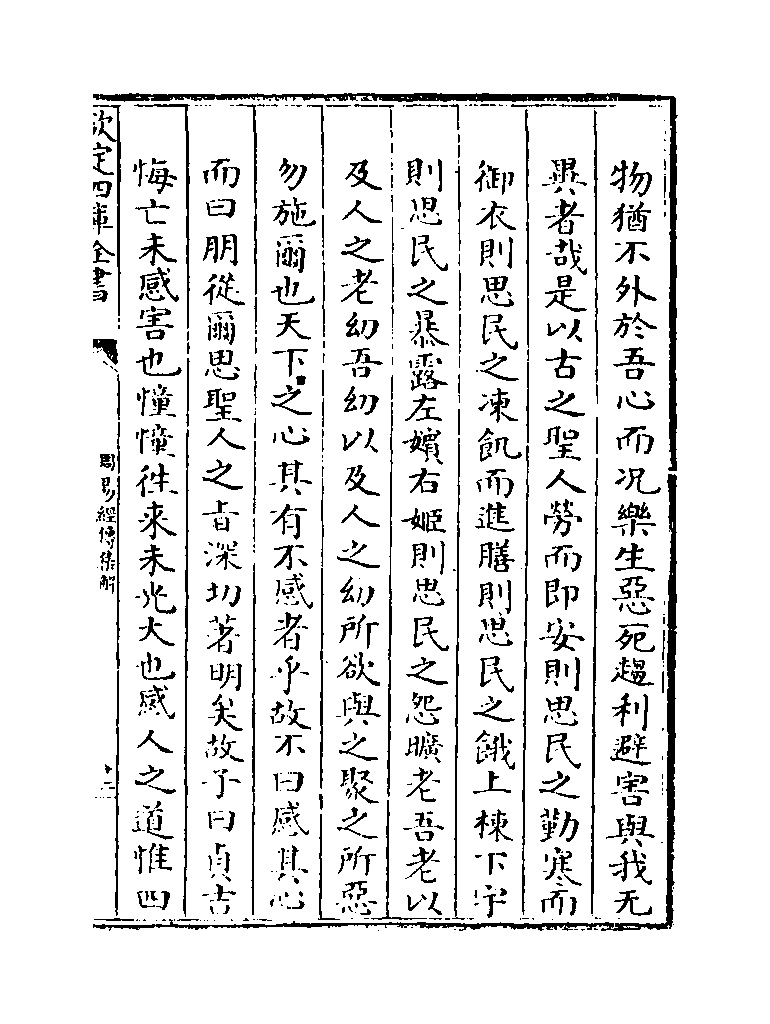 物猶不外於吾心而况樂生惡死趨利避害與我无
異者哉是以古之聖人勞而即安則思民之勤寒而
御衣則思民之凍飢而進膳則思民之餓上棟下宇
則思民之暴露左嬪右姬則思民之怨曠老吾老以
及人之老幼吾幼以及人之幼所欲與之聚之所惡
勿施爾也天下之心其有不感者乎故不曰感其心
而曰朋從爾思聖人之㫖深切著明矣故子曰貞吉
悔亡未感害也憧憧徃來未光大也感人之道惟四
欽定四庫全書
周易經傳集解
十三